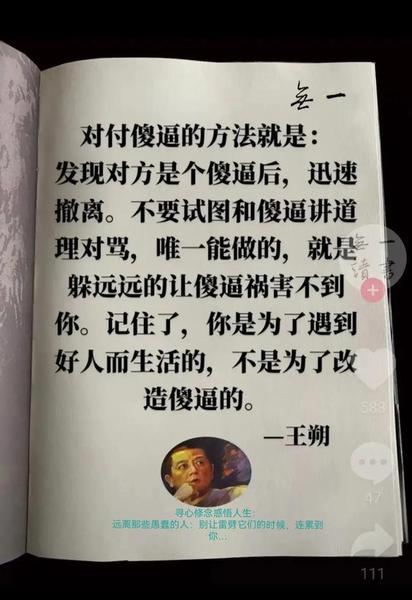 無一
对付傻逼的方法就是：
发现对方是个傻逼后，迅速
撤离。不要试图和傻逼讲道
理对骂，唯一能做的，就是
躲远远的让傻逼祸害不到
你。记住了，你是为了遇到
好人而生活的，不是为了改
造傻逼的。
—王朔
寻心修念感悟人生：
远离那些愚蠢的人：别让雷劈它们的时候，连累到
你...
無一
讀書
583
47
111